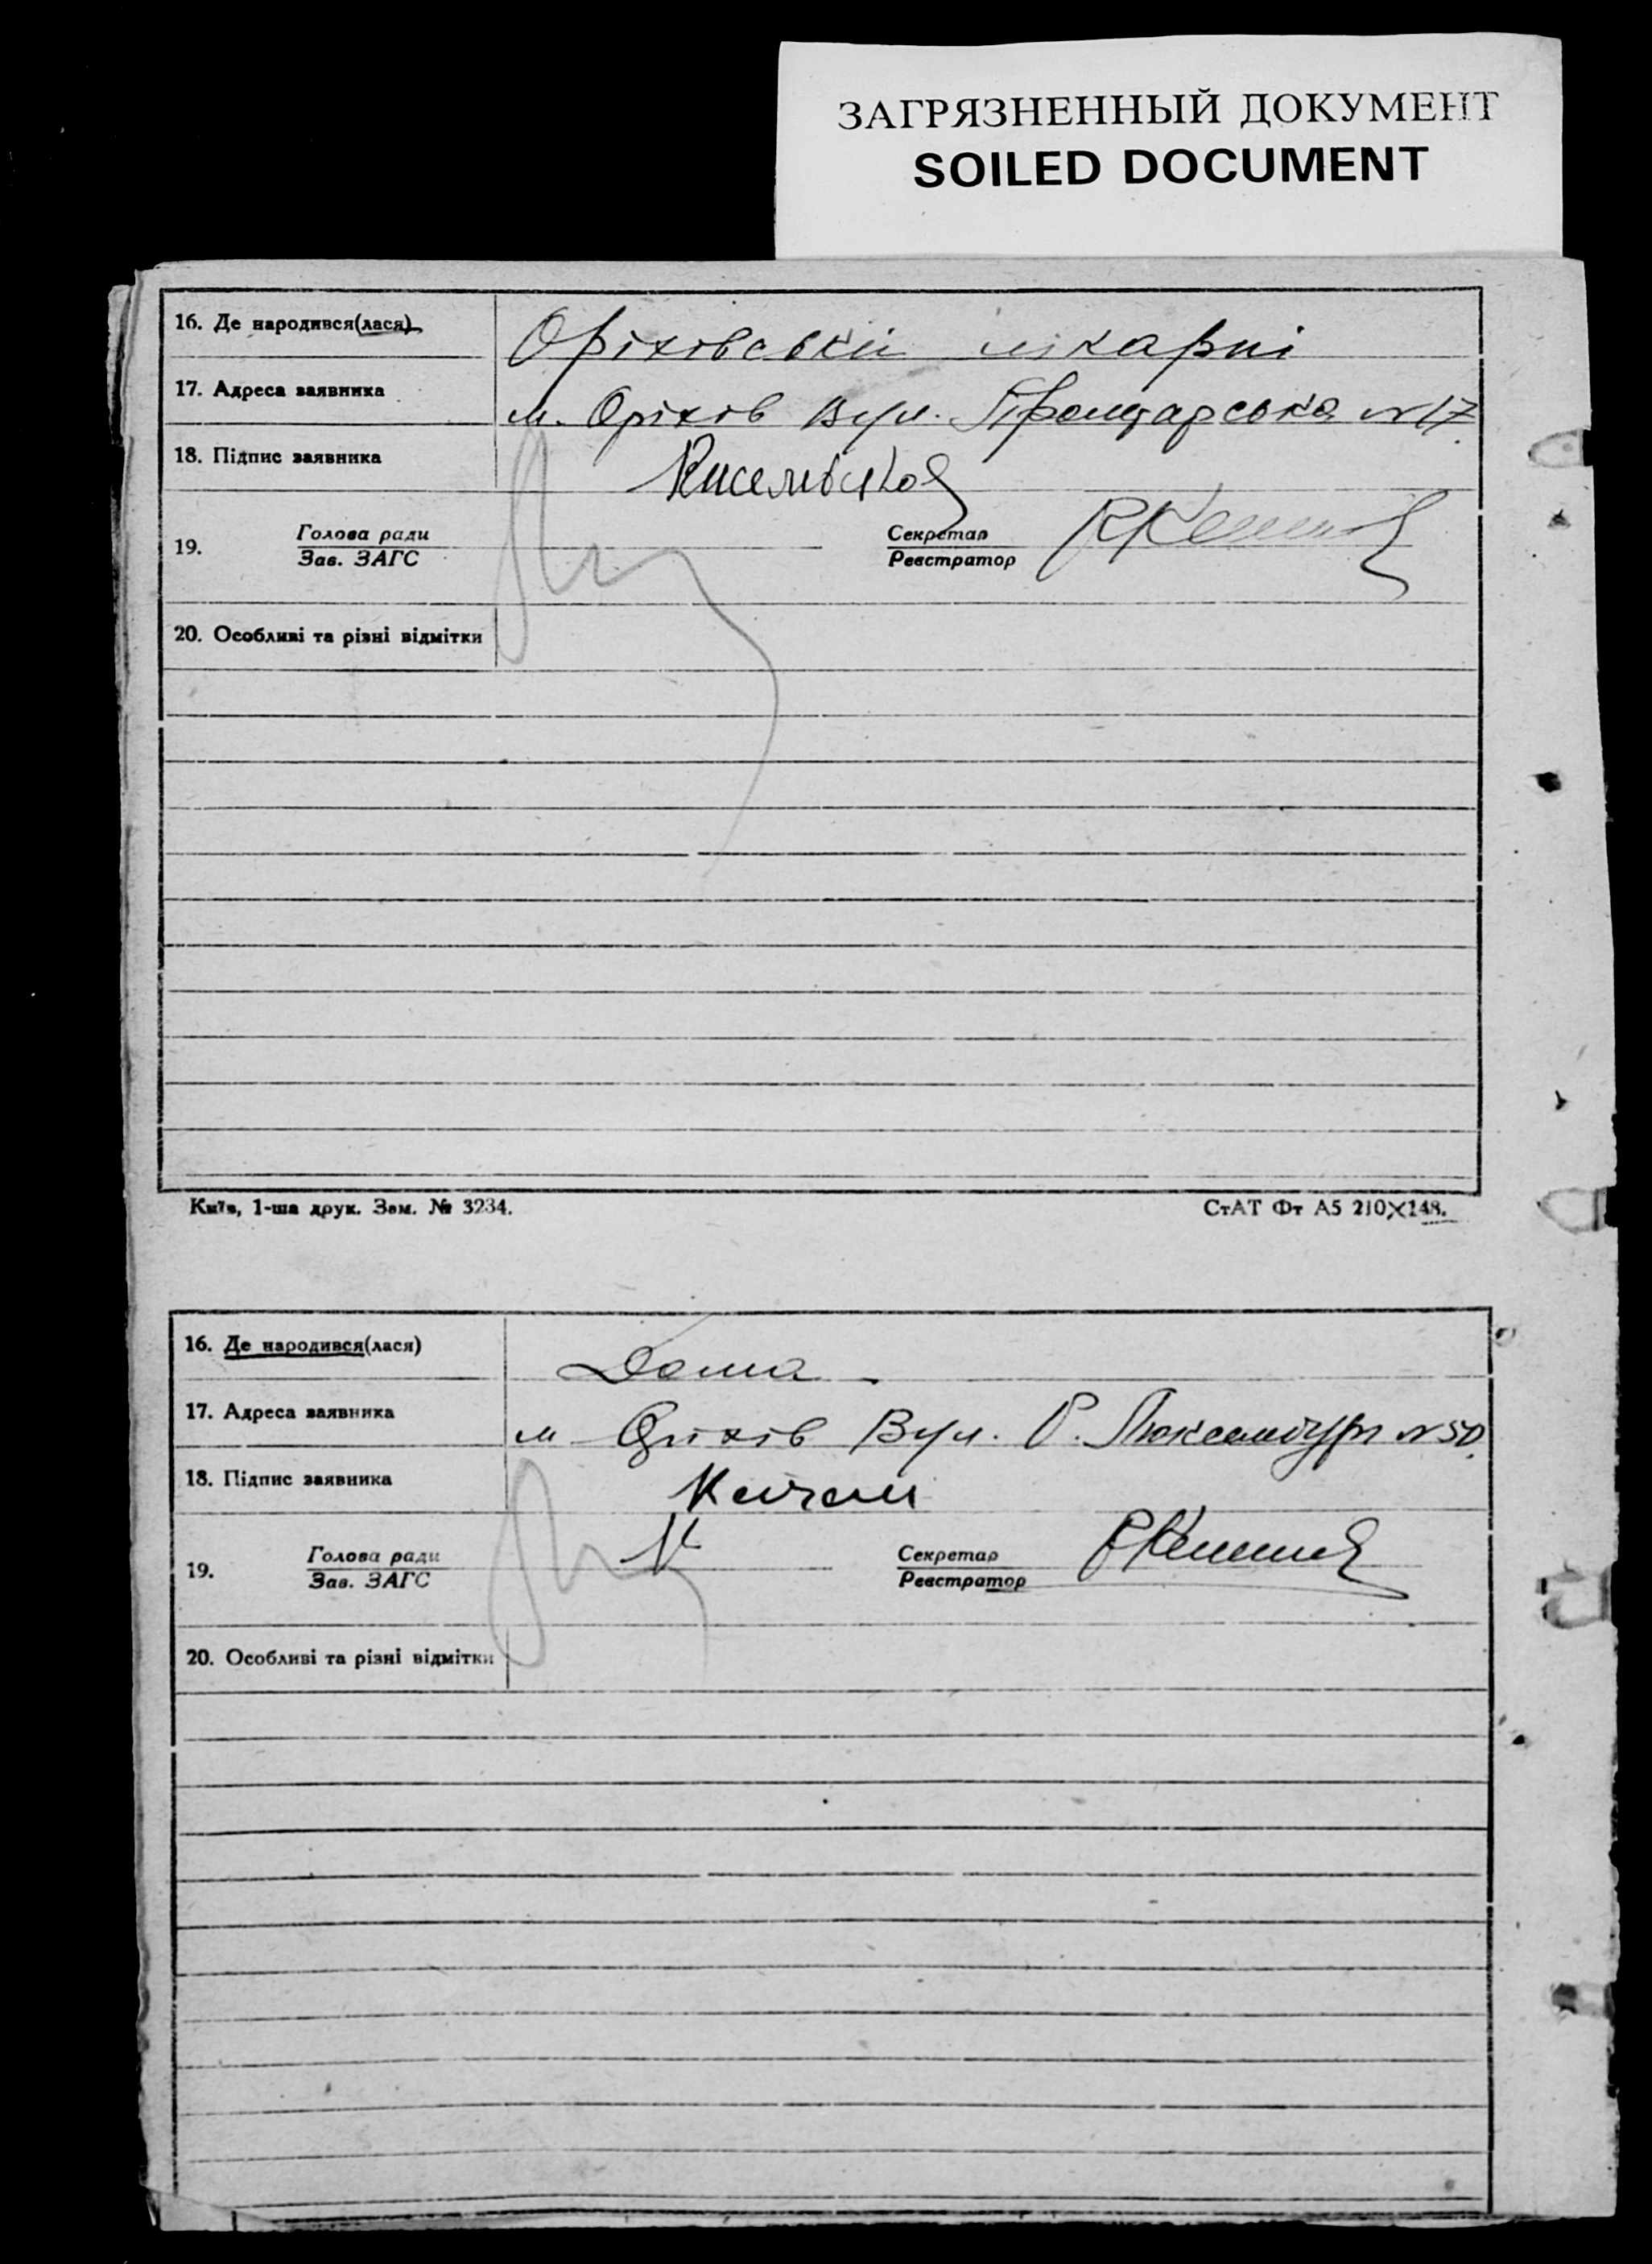 ЗАГРЯЗНЕННЫЙ ДОКУМЕНТ
SOILED DOCUMENT
16. Де народився(лася) Оріхівській лікарні
17. Адреса заявника м. Оріхів Вул. №17
18. Підпис заявника
19. Голова ради Секретар
Зав. ЗАГС Реєстратор
20. Особливі та різні відмітки
Київ, 1-ша друк. Зам. № 3234. СтАТ Фт А5 210×148.
16. Де народився(лася) Дома -
17. Адреса заявника м Оріхів Вул. Р. Люксембург №50.
18. Підпис заявника Качан
19. Голова ради Секретар
Зав. ЗАГС Реєстратор
20. Особливі та різні відмітки